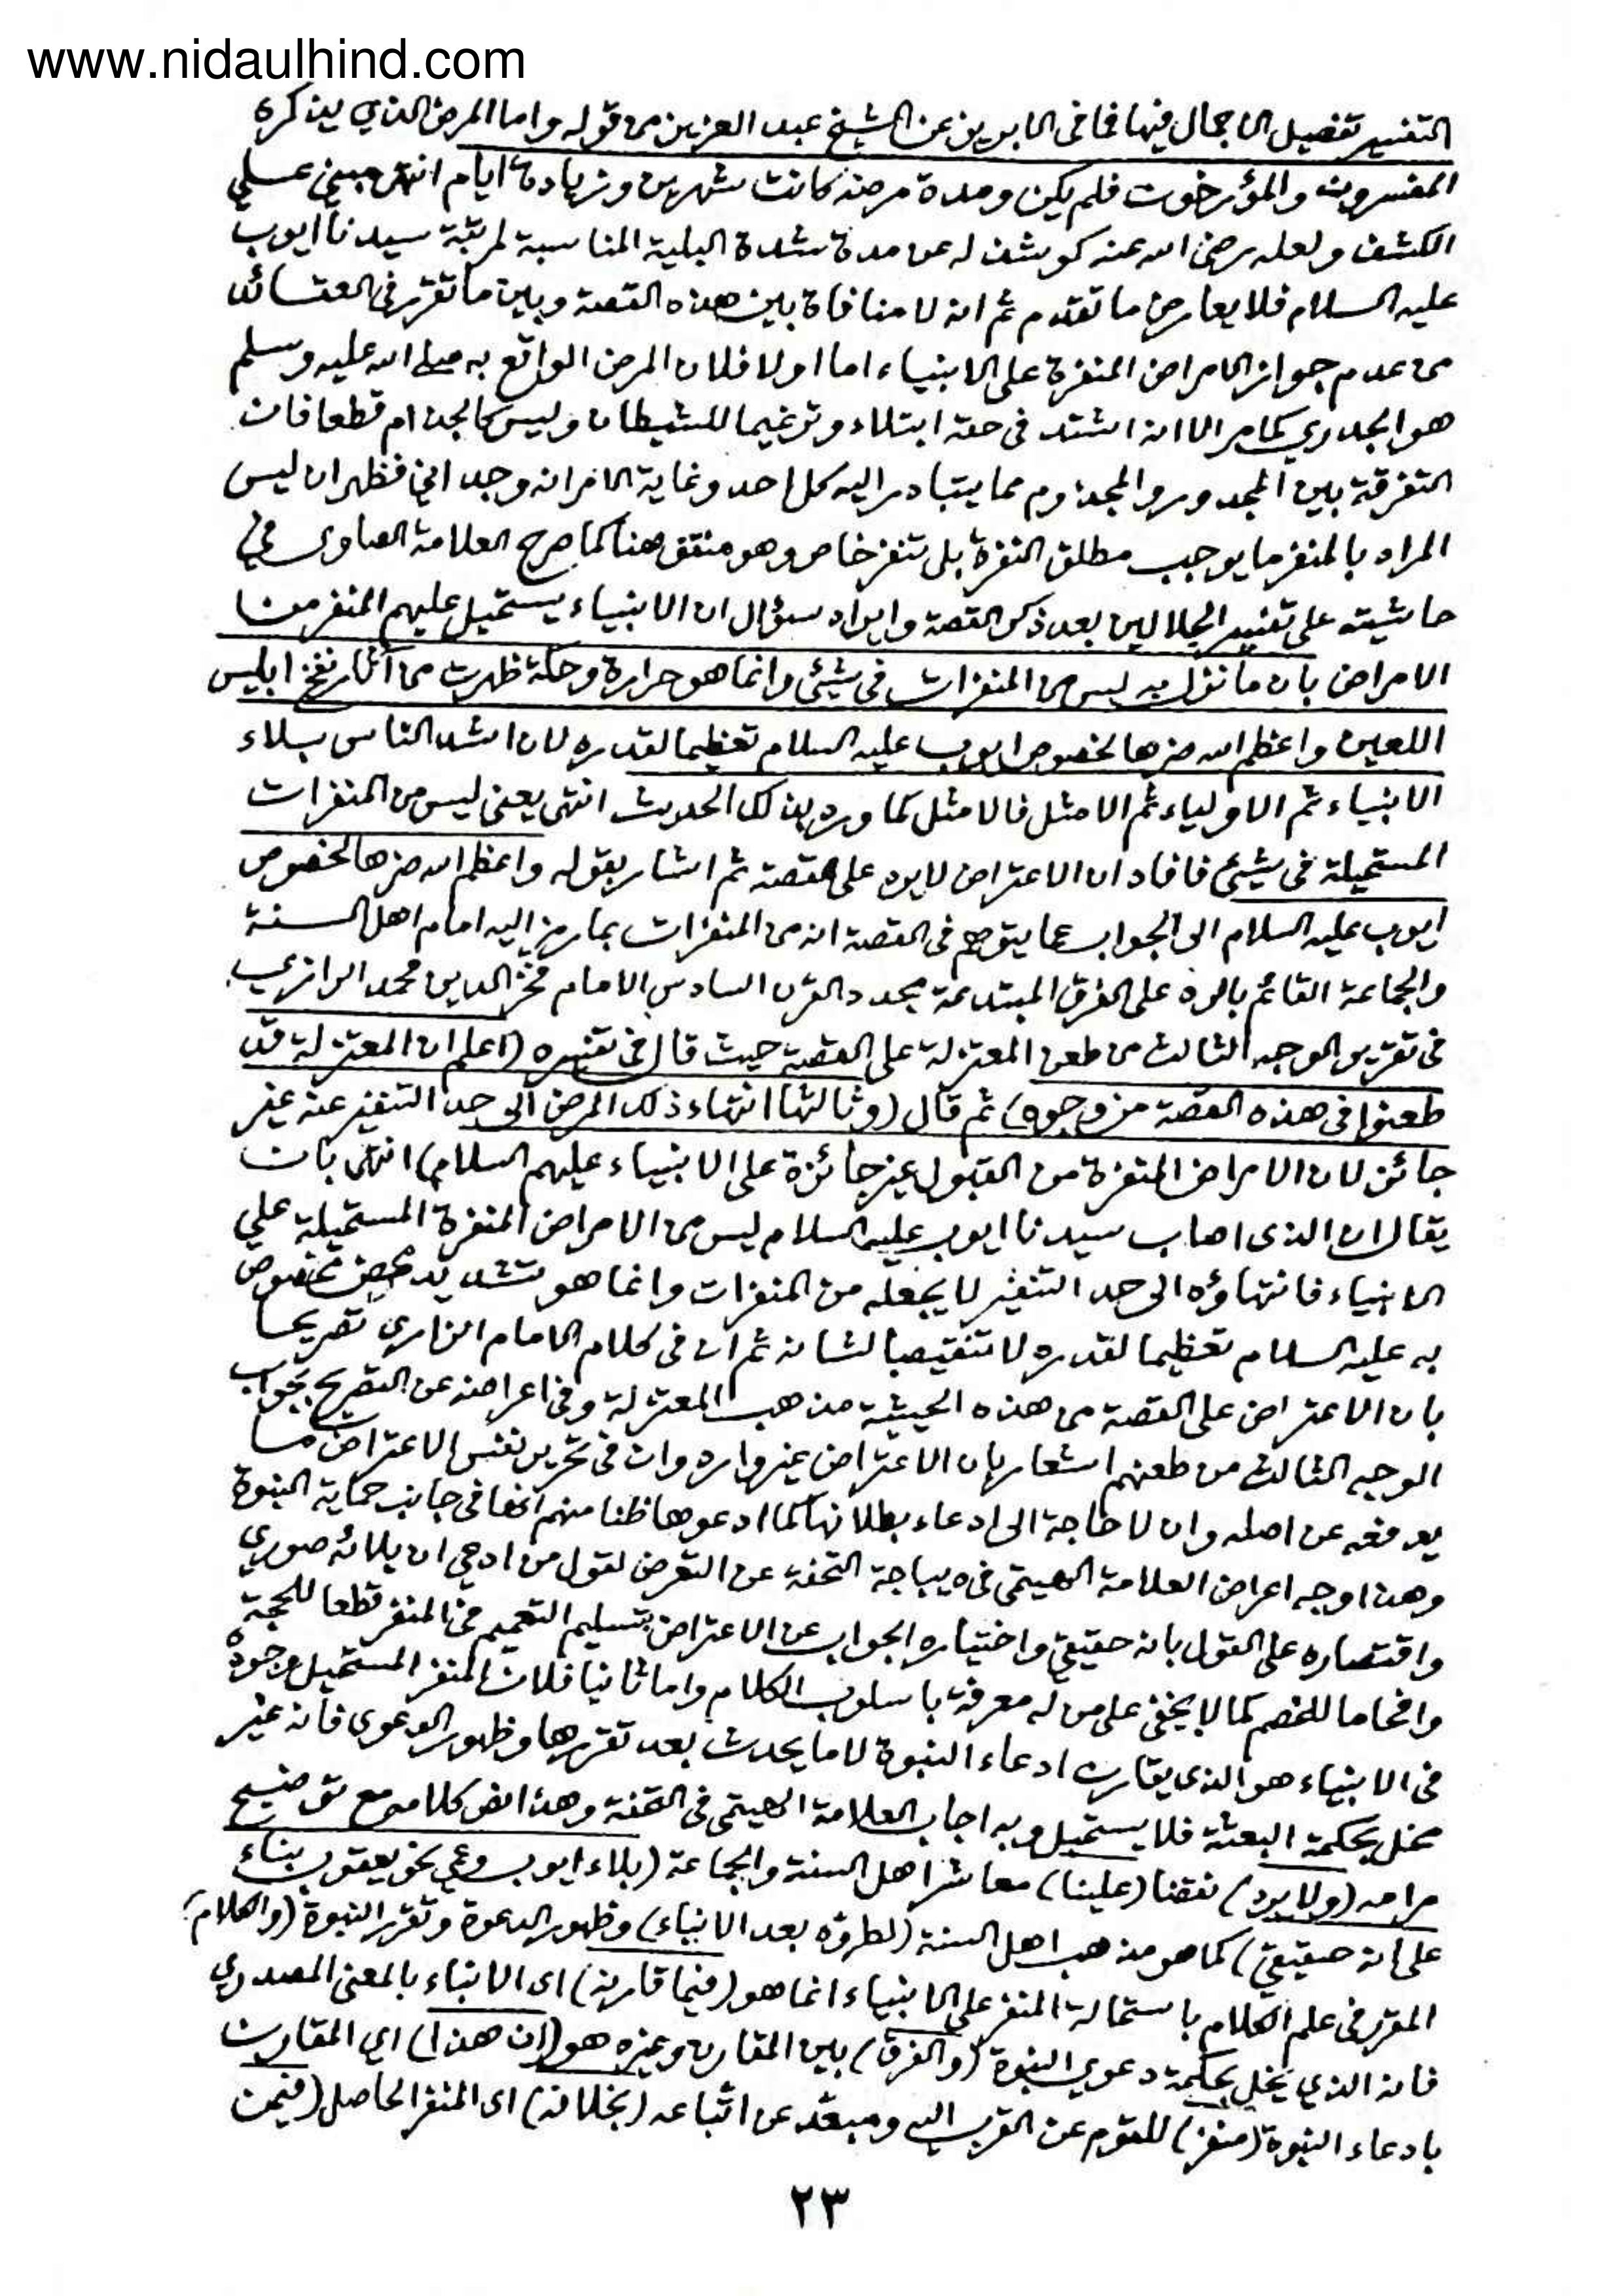 www.nidaulhind.com
التفسير تفصيل الاجمال فيها فما فى الابريز عن الشيخ عبد العزيز من قوله واما المرض الذي يذكره
المفسرون والمؤرخون فلم يكن ومدة مرضه كانت شهرين وزيادة ايام انتهى مبني على
الكشف ولعله رضى الله عنه كوشف له عن مدة شدة البلية المناسبة لمرتبة سيدنا ايوب
عليه السلام فلا يعارض ما تقدم ثم انه لا منافاة بين هذه القصة وبين ما تقرر فى العقائد
من عدم جواز الامراض المنفرة على الانبياء اما اولا فلان المرض الواقع به صلى الله عليه وسلم
هو الجدري كما مر الا انه اشتد فى حقه ابتلاء وترغيما للشيطان وليس كالجذام قطعا فان
التفرقة بين المجدور والمجذوم مما يتبادر اليه كل احد وغاية الامر انه وجداني فظهر ان ليس
المراد بالمنفر ما يوجب مطلق النفرة بل تنفر خاص وهو منتف هنا كما صرح العلامة الصاوى في
حاشيته على تفسير الجلالين بعد ذكر القصة وايراد سؤال ان الانبياء يستحيل عليهم المنفر من
الامراض بان ما نزل به ليس من المنفرات فى شيئ وانما هو حرارة وحكة ظهرت من آثار نفخ ابليس
اللعين واعظم الله ضرها لخصوص ايوب عليه السلام تعظيما لقدره لان اشد الناس بلاء
الانبياء ثم الاولياء ثم الامثل فالامثل كما ورد بذلك الحديث انتهى يعنى ليس من المنفرات
المستحيلة فى شيئ فافاد ان الاعتراض لا يرد على القصة ثم اشار بقوله واعظم الله ضرها لخصوص
ايوب عليه السلام الى الجواب عما يتوهم فى القصة انه من المنفرات بما رمز اليه امام اهل السنة
والجماعة القائم بالرد على الفرق المبتدعة مجدد القرن السادس الامام فخر الدين محمد الرازي
فى تقرير الوجه الثالث من طعن المعتزلة على القصة حيث قال فى تفسيره (اعلم ان المعتزلة قد
طعنوا فى هذه القصة من وجوه) ثم قال (وثالثها انتهاء ذلك المرض الى حد التنفير عنه غير
جائز لان الامراض المنفرة من القبول غير جائزة على الانبياء عليهم السلام) انتهى بان
يقال ان الذى اصاب سيدنا ايوب عليه السلام ليس من الامراض المنفرة المستحيلة على
الانبياء فانتهاؤه الى حد التنفير لا يجعله من المنفرات وانما هو تشديد محض مخصوص
به عليه السلام تعظيما لقدره لا تنقيصا لشانه ثم ان فى كلام الامام الرازي تصريحا
بان الاعتراض على القصة من هذه الحيثية مذهب المعتزلة وفى اعراضه عن التصريح بجواب
الوجه الثالث من طعنهم اشعار بان الاعتراض غير وارد وان فى تحرير نفس الاعتراض ما
يدفعه عن اصله وان لا حاجة الى ادعاء بطلانها كما ادعوها ظنا منهم انها فى جانب حماية النبوة
وهذا وجه اعراض العلامة الهيتمى فى ديباجة التحفة عن التعرض لقول من ادعى ان بلائه صوري
واقتصاره على القول بانه حقيقي واختياره الجواب عن الاعتراض بتسليم التعميم في المنفر قطعا للحجة
وافحاما للخصم كما لا يخفى على من له معرفة باسلوب الكلام واما ثانيا فلان المنفر المستحيل وجوده
فى الانبياء هو الذى يقارن ادعاء النبوة لا ما يحدث بعد تقررها وظهور الدعوى فانه غير
مخل بحكمة البعثة فلا يستحيل وبه اجاب العلامة الهيتمى فى التحفة وهذا نص كلامه مع توضيح
مرامه (ولا يرد) نقضا (علينا) معاشر اهل السنة والجماعة (بلاء ايوب وعمي نحو يعقوب بناء
على انه حقيقي) كما هو مذهب اهل السنة (لطروه بعد الانباء) وظهور الدعوة وتقرر النبوة (والكلام)
المقرر فى علم الكلام باستحالة المنفر على الانبياء انما هو (فيما قارنه) اى الانباء بالمعنى المصدري
فانه الذي يخل بحكمة دعوي النبوة (والفرق) بين المقارن وغيره هو (ان هذا) اي المقارن
بادعاء النبوة (منفر) للقوم عن القرب اليه ومبعد عن اتباعه (بخلافه) اى المنفر الحاصل (فيمن
٢٣